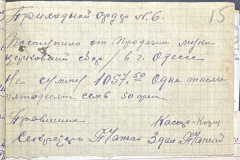 Приходный Ордер № 6.
15
Поступило от Продажи муки
церковный сбор в г. Одессе
На сумму 1057,50 Одна тысяча
пятьдесят семь 50 коп
Правление
Кассир-Казн
Секретарь